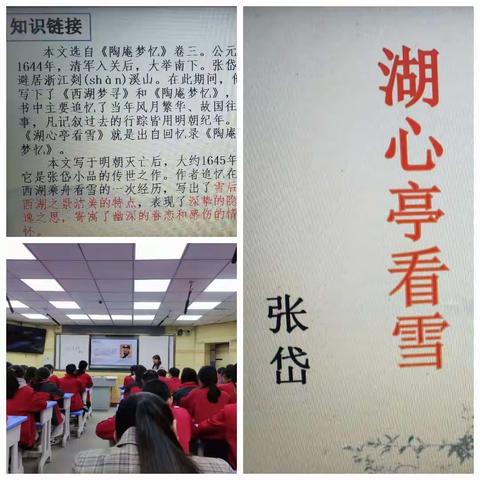 知识链接
本文选自《陶庵梦忆》卷三。公元
1644年，清军入关后，大举南下。张岱
避居浙江剡(shàn)溪山。在此期间，他
写下了《西湖梦寻》和《陶庵梦忆》，
书中主要追忆了当年风月繁华、故国往
事，凡记叙过去的行踪皆用明朝纪年。
《湖心亭看雪》就是出自回忆录《陶庵
梦忆》。
本文写于明朝灭亡后，大约1645年
它是张岱小品的传世之作。作者追忆在
西湖乘舟看雪的一次经历，写出了雪后
西湖之景洁美的特点，表现了深挚的隐
逸之思，寄寓了幽深的眷恋和感伤的情
怀。
湖心亭看雪
张岱